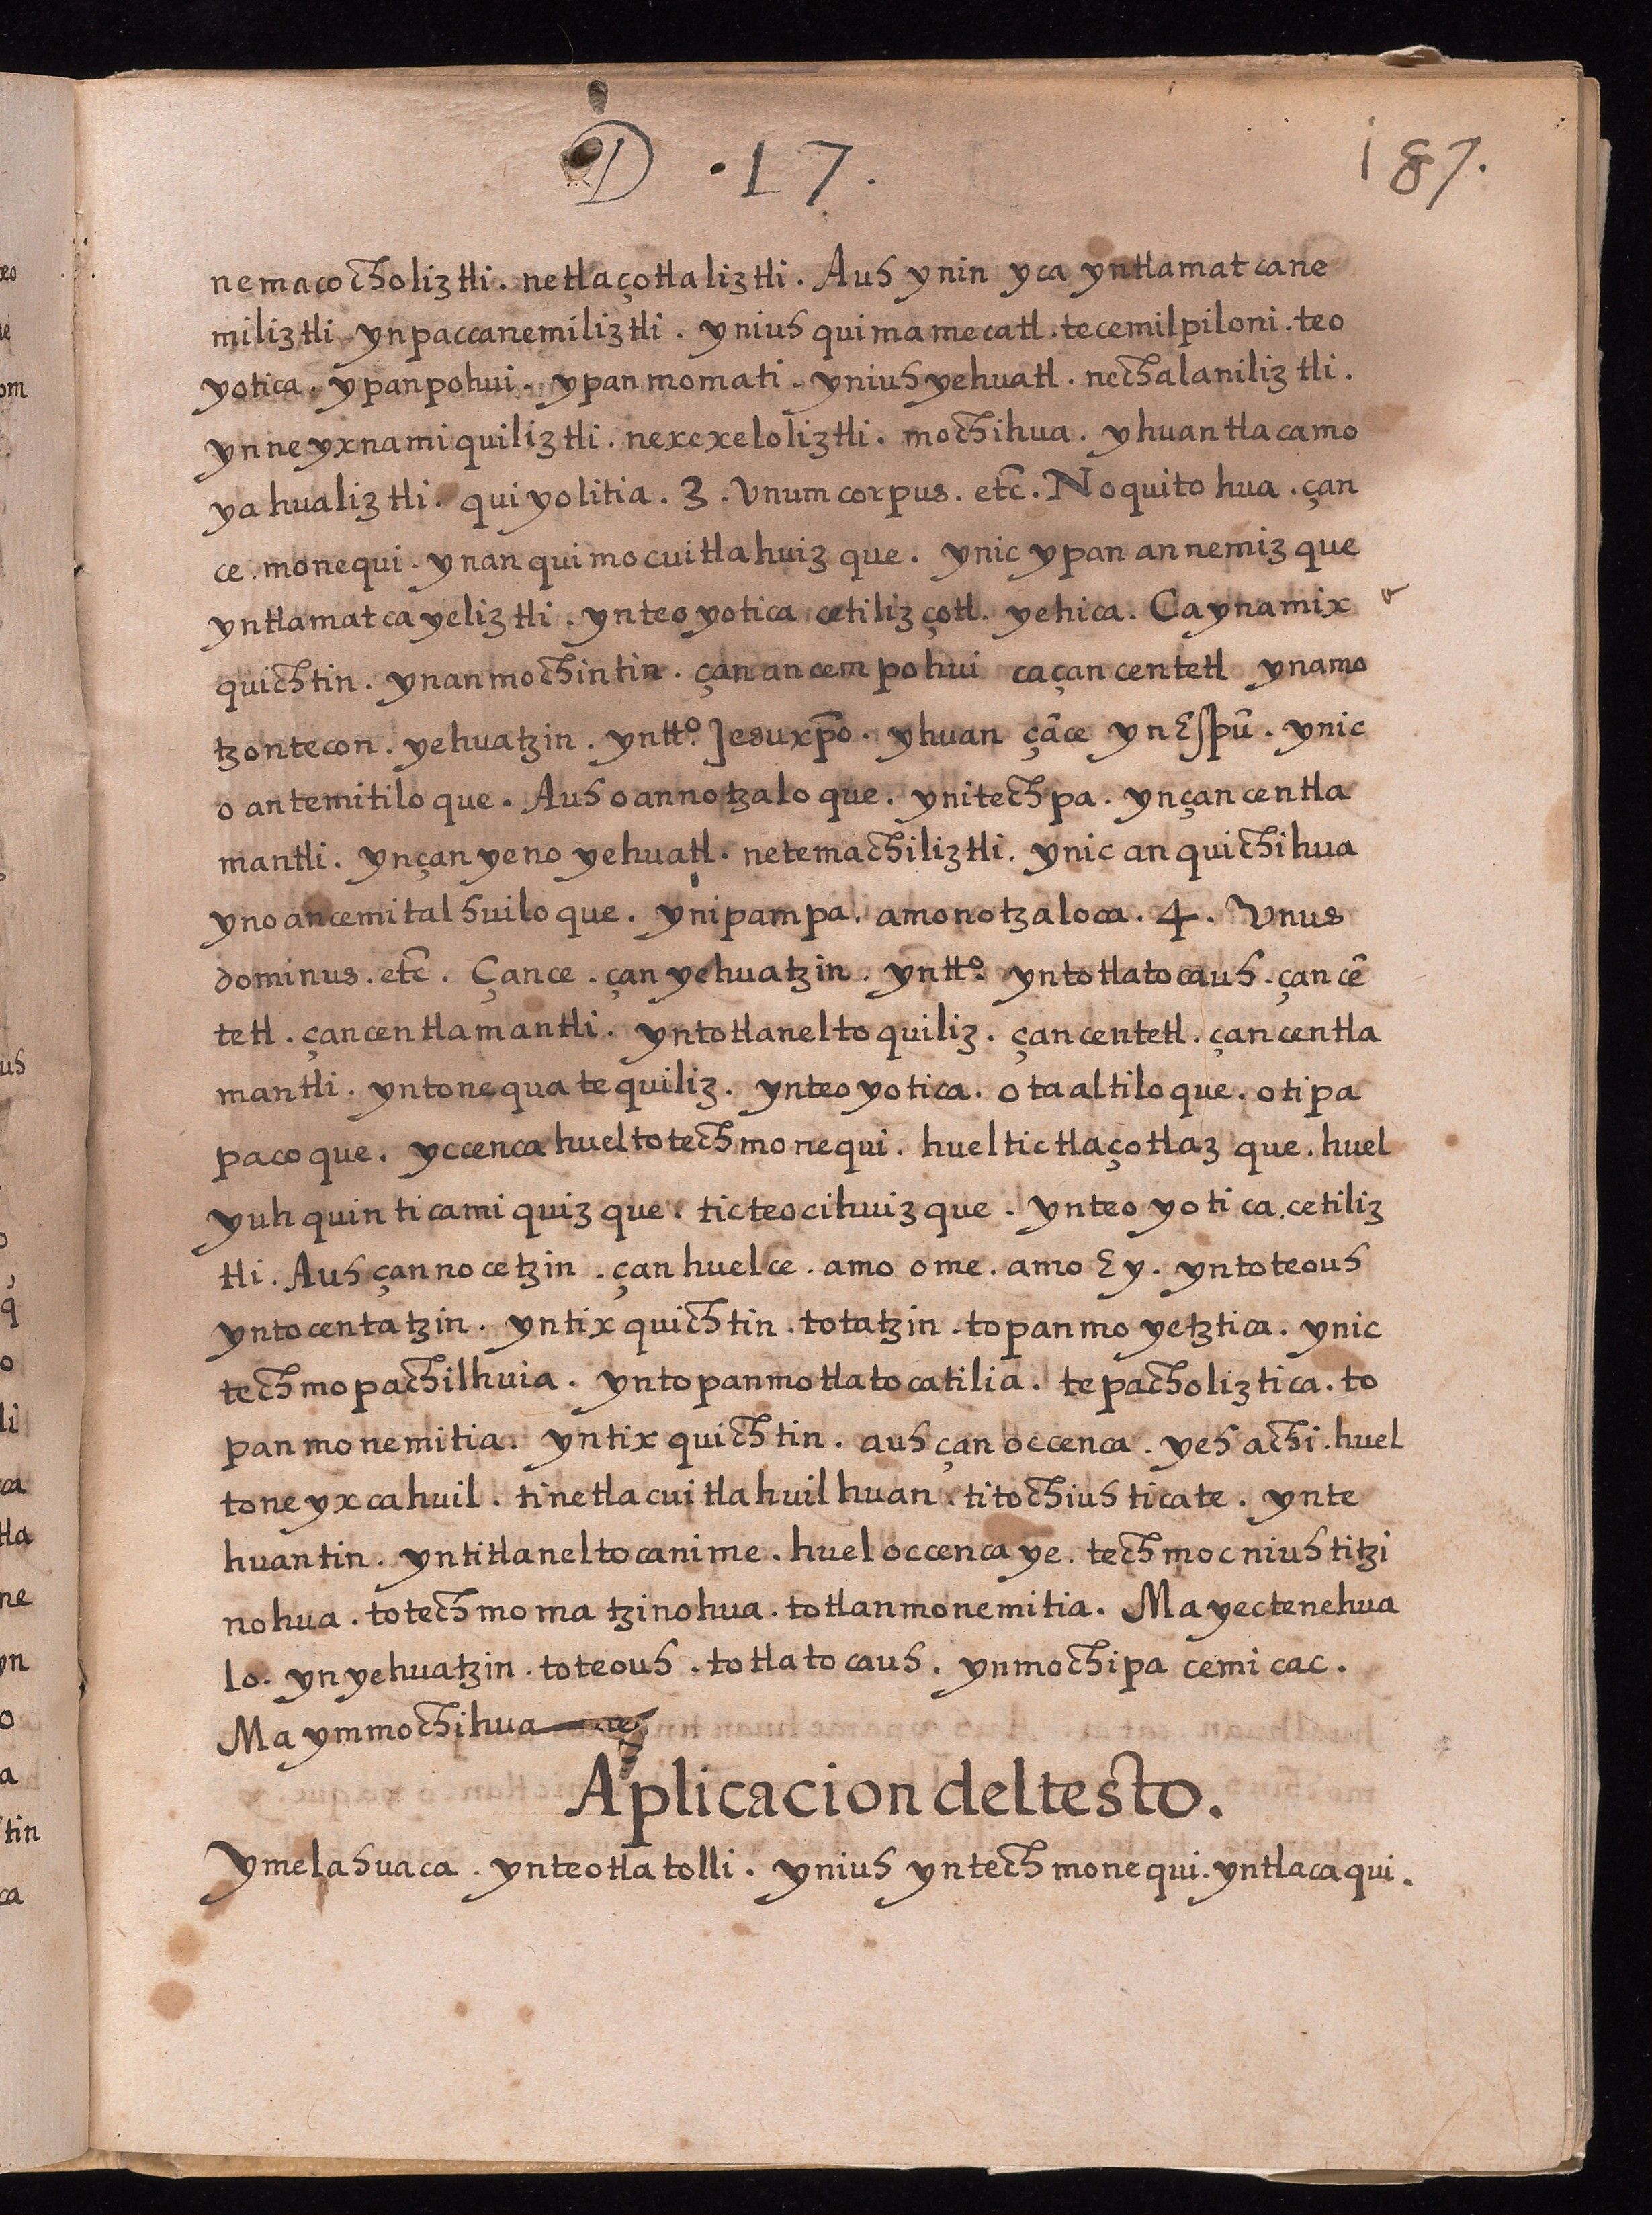 D · 17 .
187.
nemacocholiztli . netlaçotlaliztli . Auh ynin yca yntlamatcane
miliztli ynpaccanemiliztli . yniuh quimamecatl . tecemilpiloni . teo
yotica . ypanpohui . ypanmomati . yniuh yehuatl . nechalaniliztli .
ynneyxnamiquiliztli . nexexeloliztli . mochihua . yhuantlacamo
yahualiztli . quiyolitia . 3 . Vnum corpus . etc̄ . Noquitohua . çan
ce . monequi . ynanquimocuitlahuizque . ynic ypan annemizque
yntlamatcayeliztli . ynteoyotica cetilizçotl . yehica . Caynamix
quichtin . ynanmochintin . çanancempohui caçancentetl ynamo
tzontecon . yehuatzin . yntt.º Jesuxp̄o . yhuan çāce ynEspū . ynic
oantemitiloque . Auh oannotzaloque . ynitechpa . ynçancentla
mantli . ynçanyeno yehuatl . netemachiliztli . ynic anquichihua
ynoancemitalhuiloque . ynipampa . amonotzaloca . 4 . Vnus
dominus . etc̄ . Çance . çanyehuatzin . yntt.º yntotlatocauh . çancē
tetl . çancentlamantli . yntotlaneltoquiliz . çancentetl . çancentla
mantli . yntonequatequiliz . ynteoyotica . otaaltiloque . otipa
pacoque . yccenca hueltotechmonequi . hueltictlaçotlazque . huel
yuhquinticamiquizque . ticteocihuizque . ynteoyotica . cetiliz
tli . Auh çannocetzin . çanhuelce . amo ome . amo Ey . yntoteouh
yntocentatzin . yntixquichtin . totatzin . topanmoyetztica . ynic
techmopachilhuia . yntopanmotlatocatilia . tepacholiztica . to
panmonemitia . yntixquichtin . auh çanoccenca . yeh achi . huel
toneyxcahuil . tinetlacuitlahuilhuan . titochiuhticate . ynte
huantin . yntitlaneltocanime . hueloccencaye . techmocniuhtitzi
nohua . totechmomatzinohua . totlanmonemitia . Mayectenehua
lo . ynyehuatzin . toteouh . totlatocauh . ynmochipa cemicac .
Maymmochihua
Aplicacion deltesto .
Ymelahuaca . ynteotlatolli . yniuh yntechmonequi . yntlacaqui .